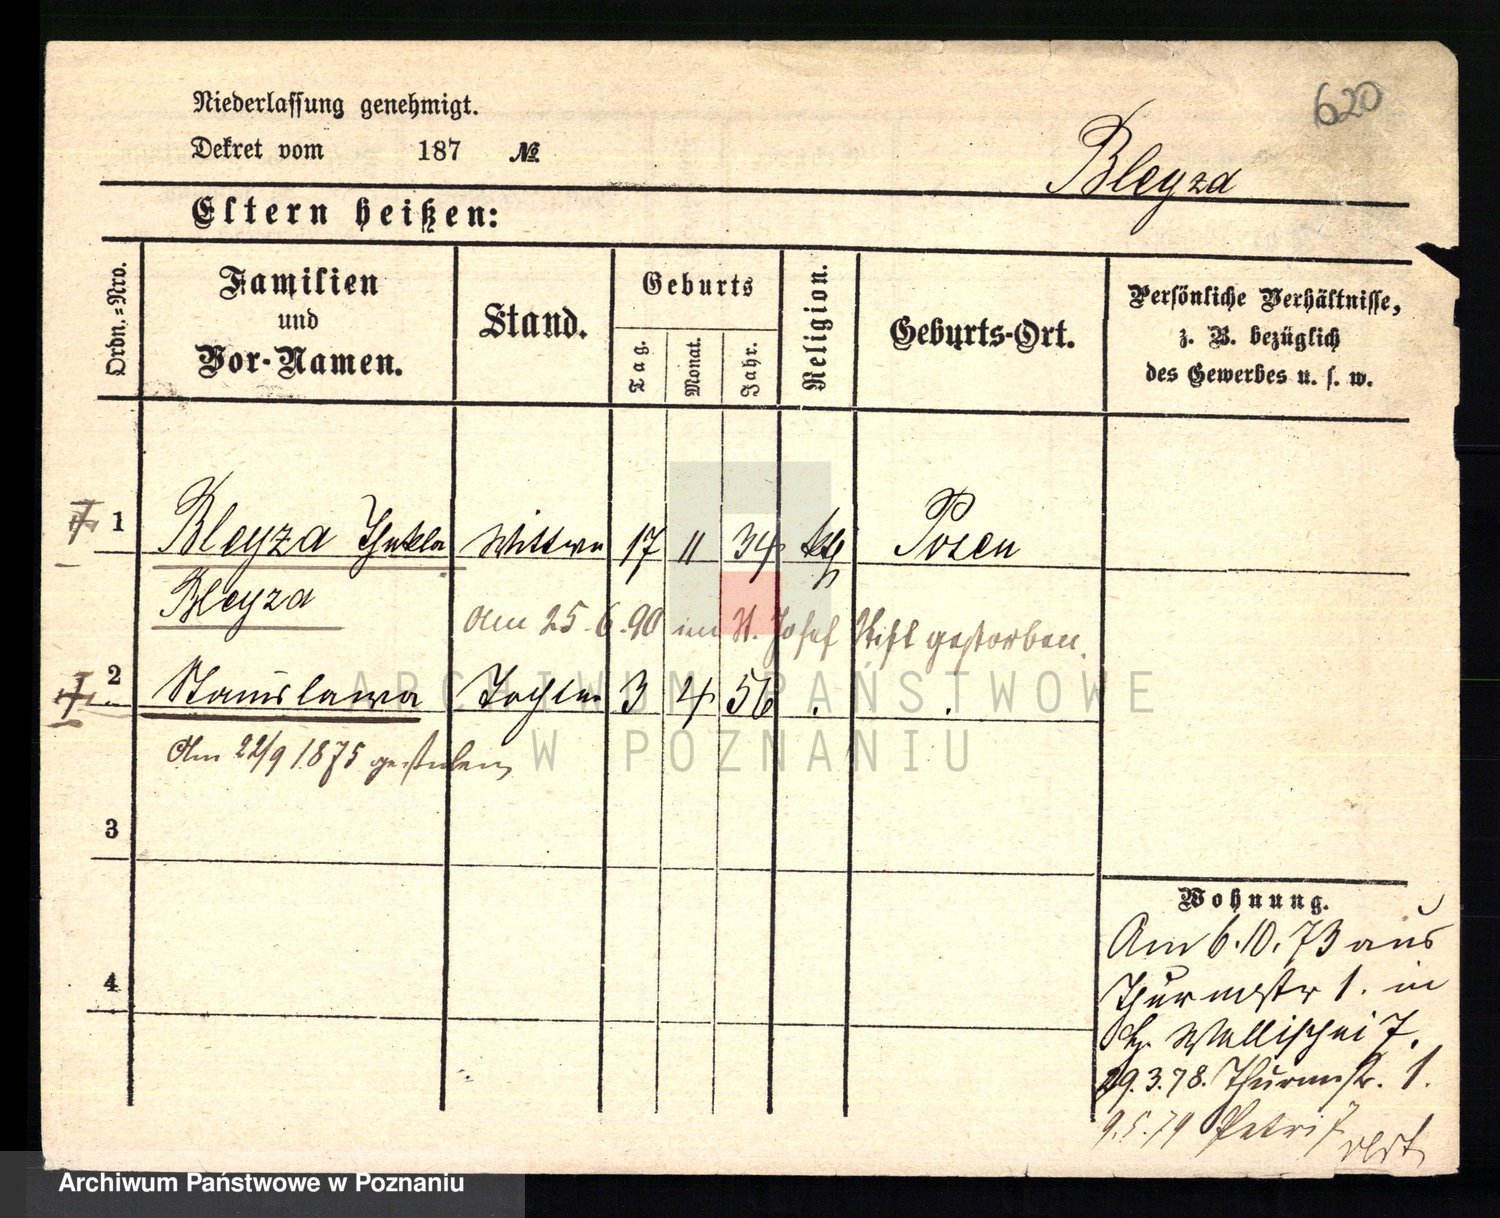 620
Niederlassung genehmigt.
Dekret vom 187 №
Bleyza
Eltern heißen:
Ordn.=Nro.
Familien
und
Vor-Namen.
Stand.
Geburts
Tag.
Monat.
Jahr.
Religion.
Geburts-Ort.
Persönliche Verhältnisse,
z. B. bezüglich
des Gewerbes u. s. w.
1 Bleyza Thekla Wittwe 17 11 34 kth Posen
Bleyza
Am 25.6.90 im St. Josef Stift gestorben.
2 Stanislawa Tochter 3 4 56 . .
Am 22/9 1875 gestorben
3
4
Wohnung.
Am 6.10.73 aus
Thurmstr 1. in
Wallischei 7.
29.3.78. Thurmstr. 1.
9.5.79 Petri 7
ARCHIWUM PAŃSTWOWE
W POZNANIU
Archiwum Państwowe w Poznaniu